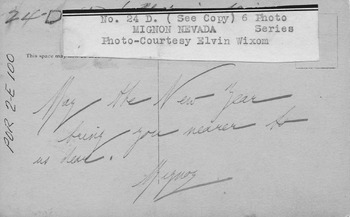 24-D
No. 24 D. ( See Copy) 6 Photo
MIGNON NEVADA Series
Photo-Courtesy Elvin Wixom
This spare may
PUR 2-E 100
May the New Year
bring you nearer to
us dear.